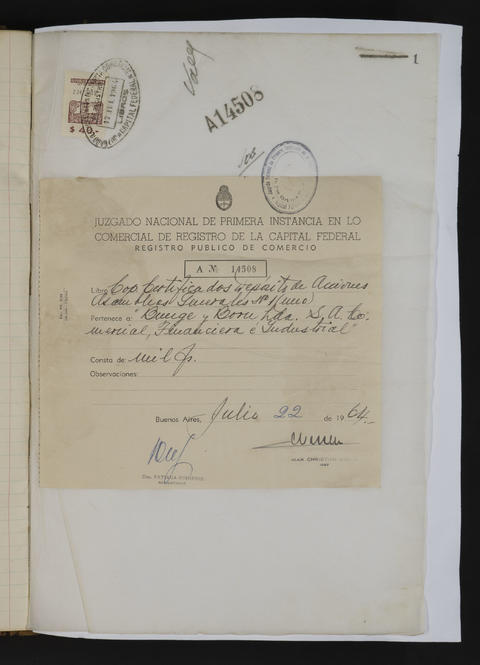 1
A14508
$ 40
LIBROS
CAPITAL FEDERAL
JUZGADO NACIONAL DE PRIMERA INSTANCIA EN LO
COMERCIAL DE REGISTRO DE LA CAPITAL FEDERAL
REGISTRO PUBLICO DE COMERCIO
A Nº 14508
Libro Cop. Certificados depósito de Acciones
Asambleas Generales Nº 1 (uno)
Pertenece a: "Bunge y Born Ltda. S. A. Co-
mercial, Financiera e Industrial"
Consta de: mil fs.
Observaciones:
Buenos Aires, Julio 22 de 1964.-